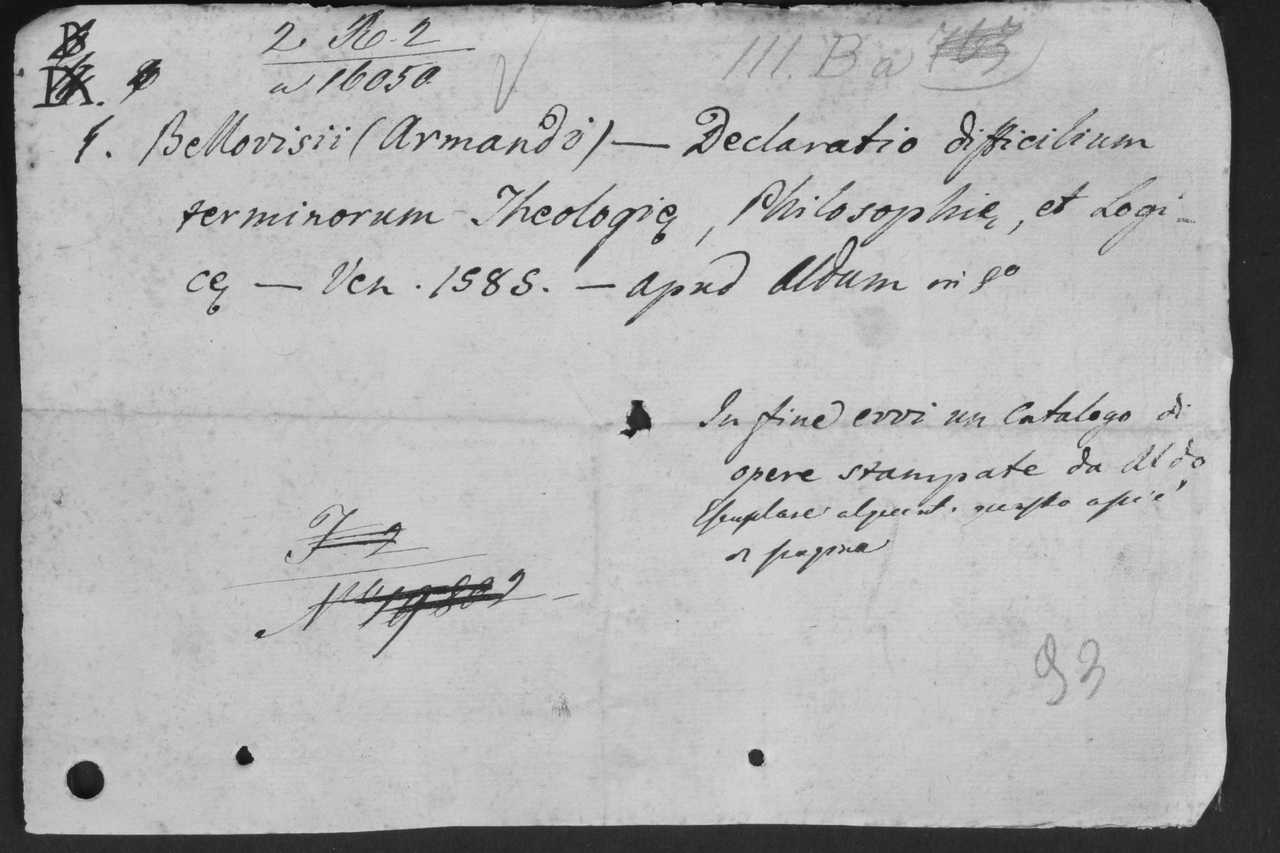 2. R. 2
a 16050
III. B a 763
IX.
Bellovisii (Armandi) — Declaratio difficilium
terminorum Theologię, Philosophię, et Logi-
cę — Ven. 1585. — apud Aldum in 8º
In fine evvi un Catalogo di
opere stampate da Aldo
Esemplare alquant. guasto a piè
di pagina
93